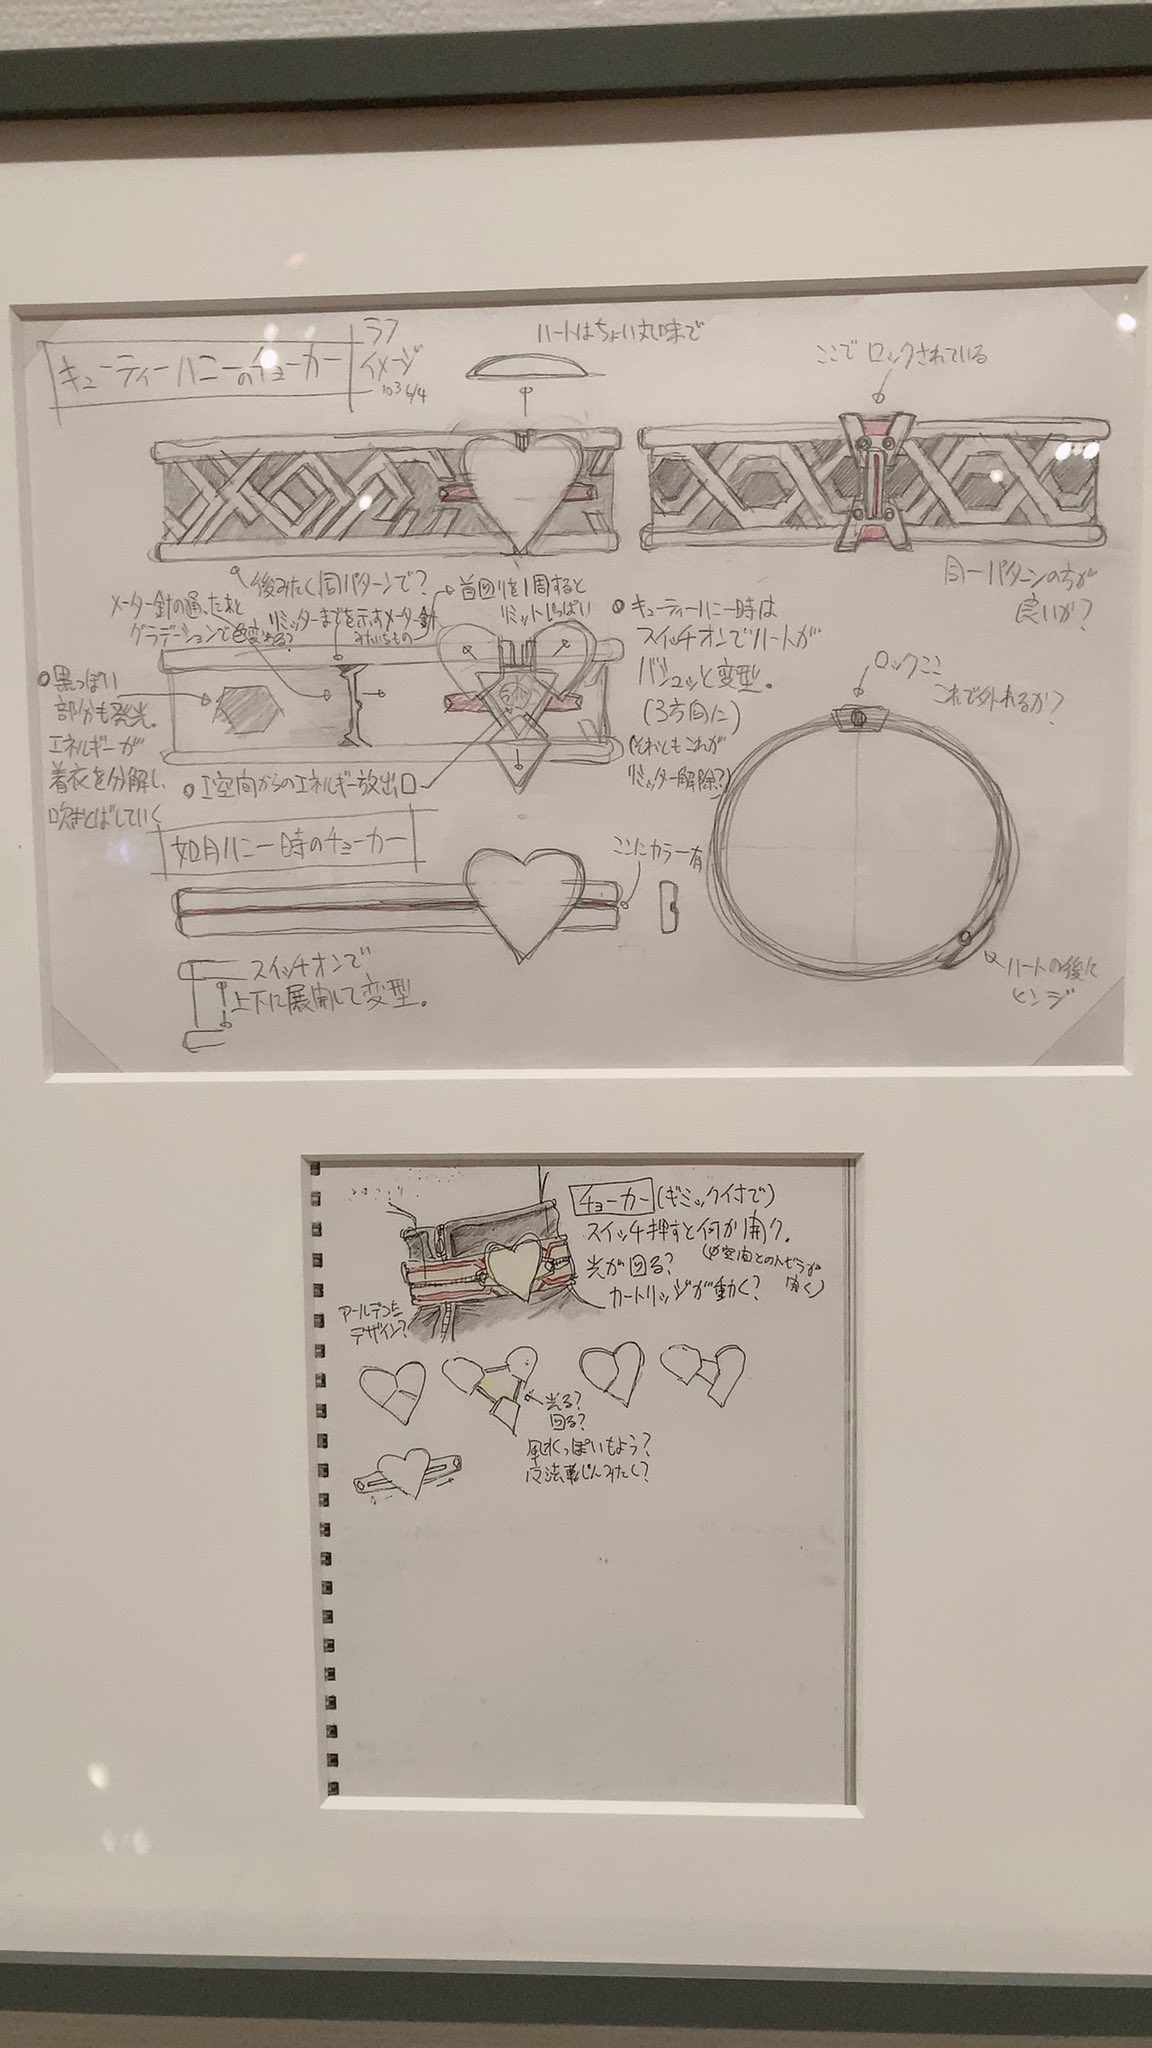 キューティーハニーのチョーカー
ラフ
イメージ
ハートはちょい丸味で
ここでロックされている
後みたく同パターンで?
同一パターンの方が
良いか?
メーター針の通ったあと
グラデーションで色変める?
リミッターまでを示すメーター針
みたいなもの
首回りを1周すると
リミットいっぱい
キューティーハニー時は
スイッチオンでハートが
バシュッと変型。
(3方向に)
(それともこれが
リミッター解除?)
黒っぽい
部分も発光。
エネルギーが
着衣を分解し、
吹きとばしていく
I空間からのエネルギー放出口
ロックここ
これで外れるか?
如月ハニー時のチョーカー
ここにカラー有
スイッチオンで
上下に展開して変型。
ハートの後に
ヒンジ
チョーカー(ギミック付で)
スイッチ押すと何か開く。
光が回る?
空間とのトビラが
開く)
カートリッジが動く?
アールデコな
デザイン?
光る?
回る?
風水っぽいもよう?